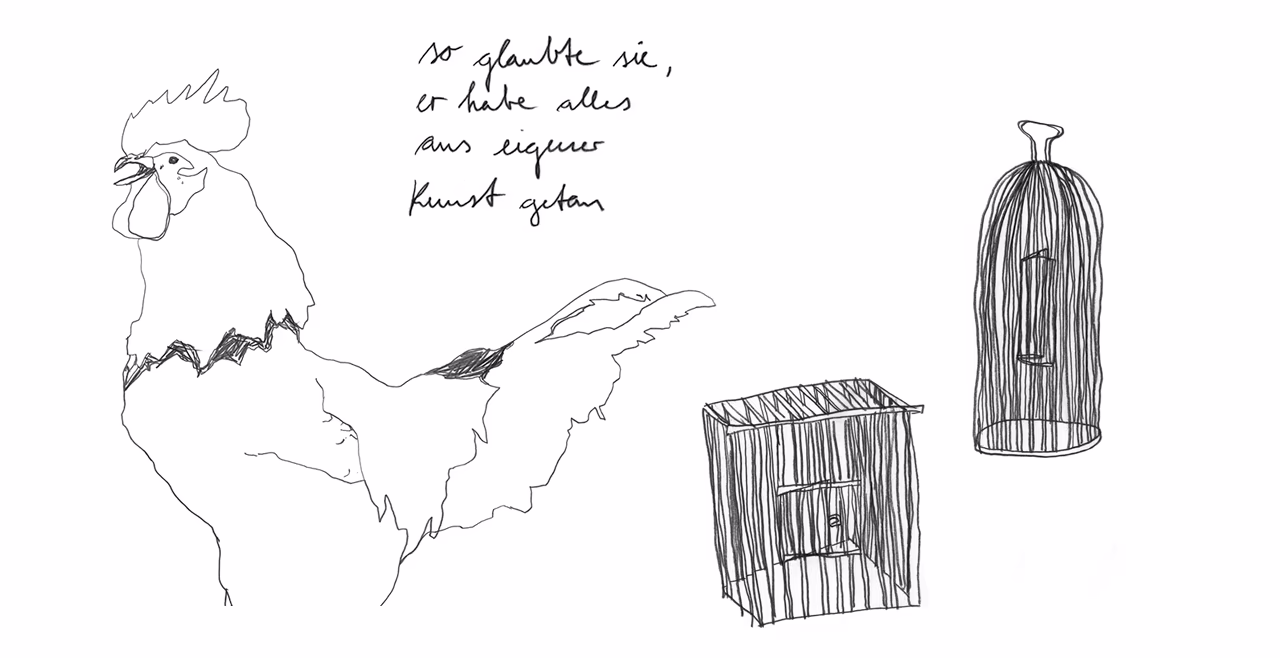 so glaubte sie,
er habe alles
aus eigener
Kunst getan